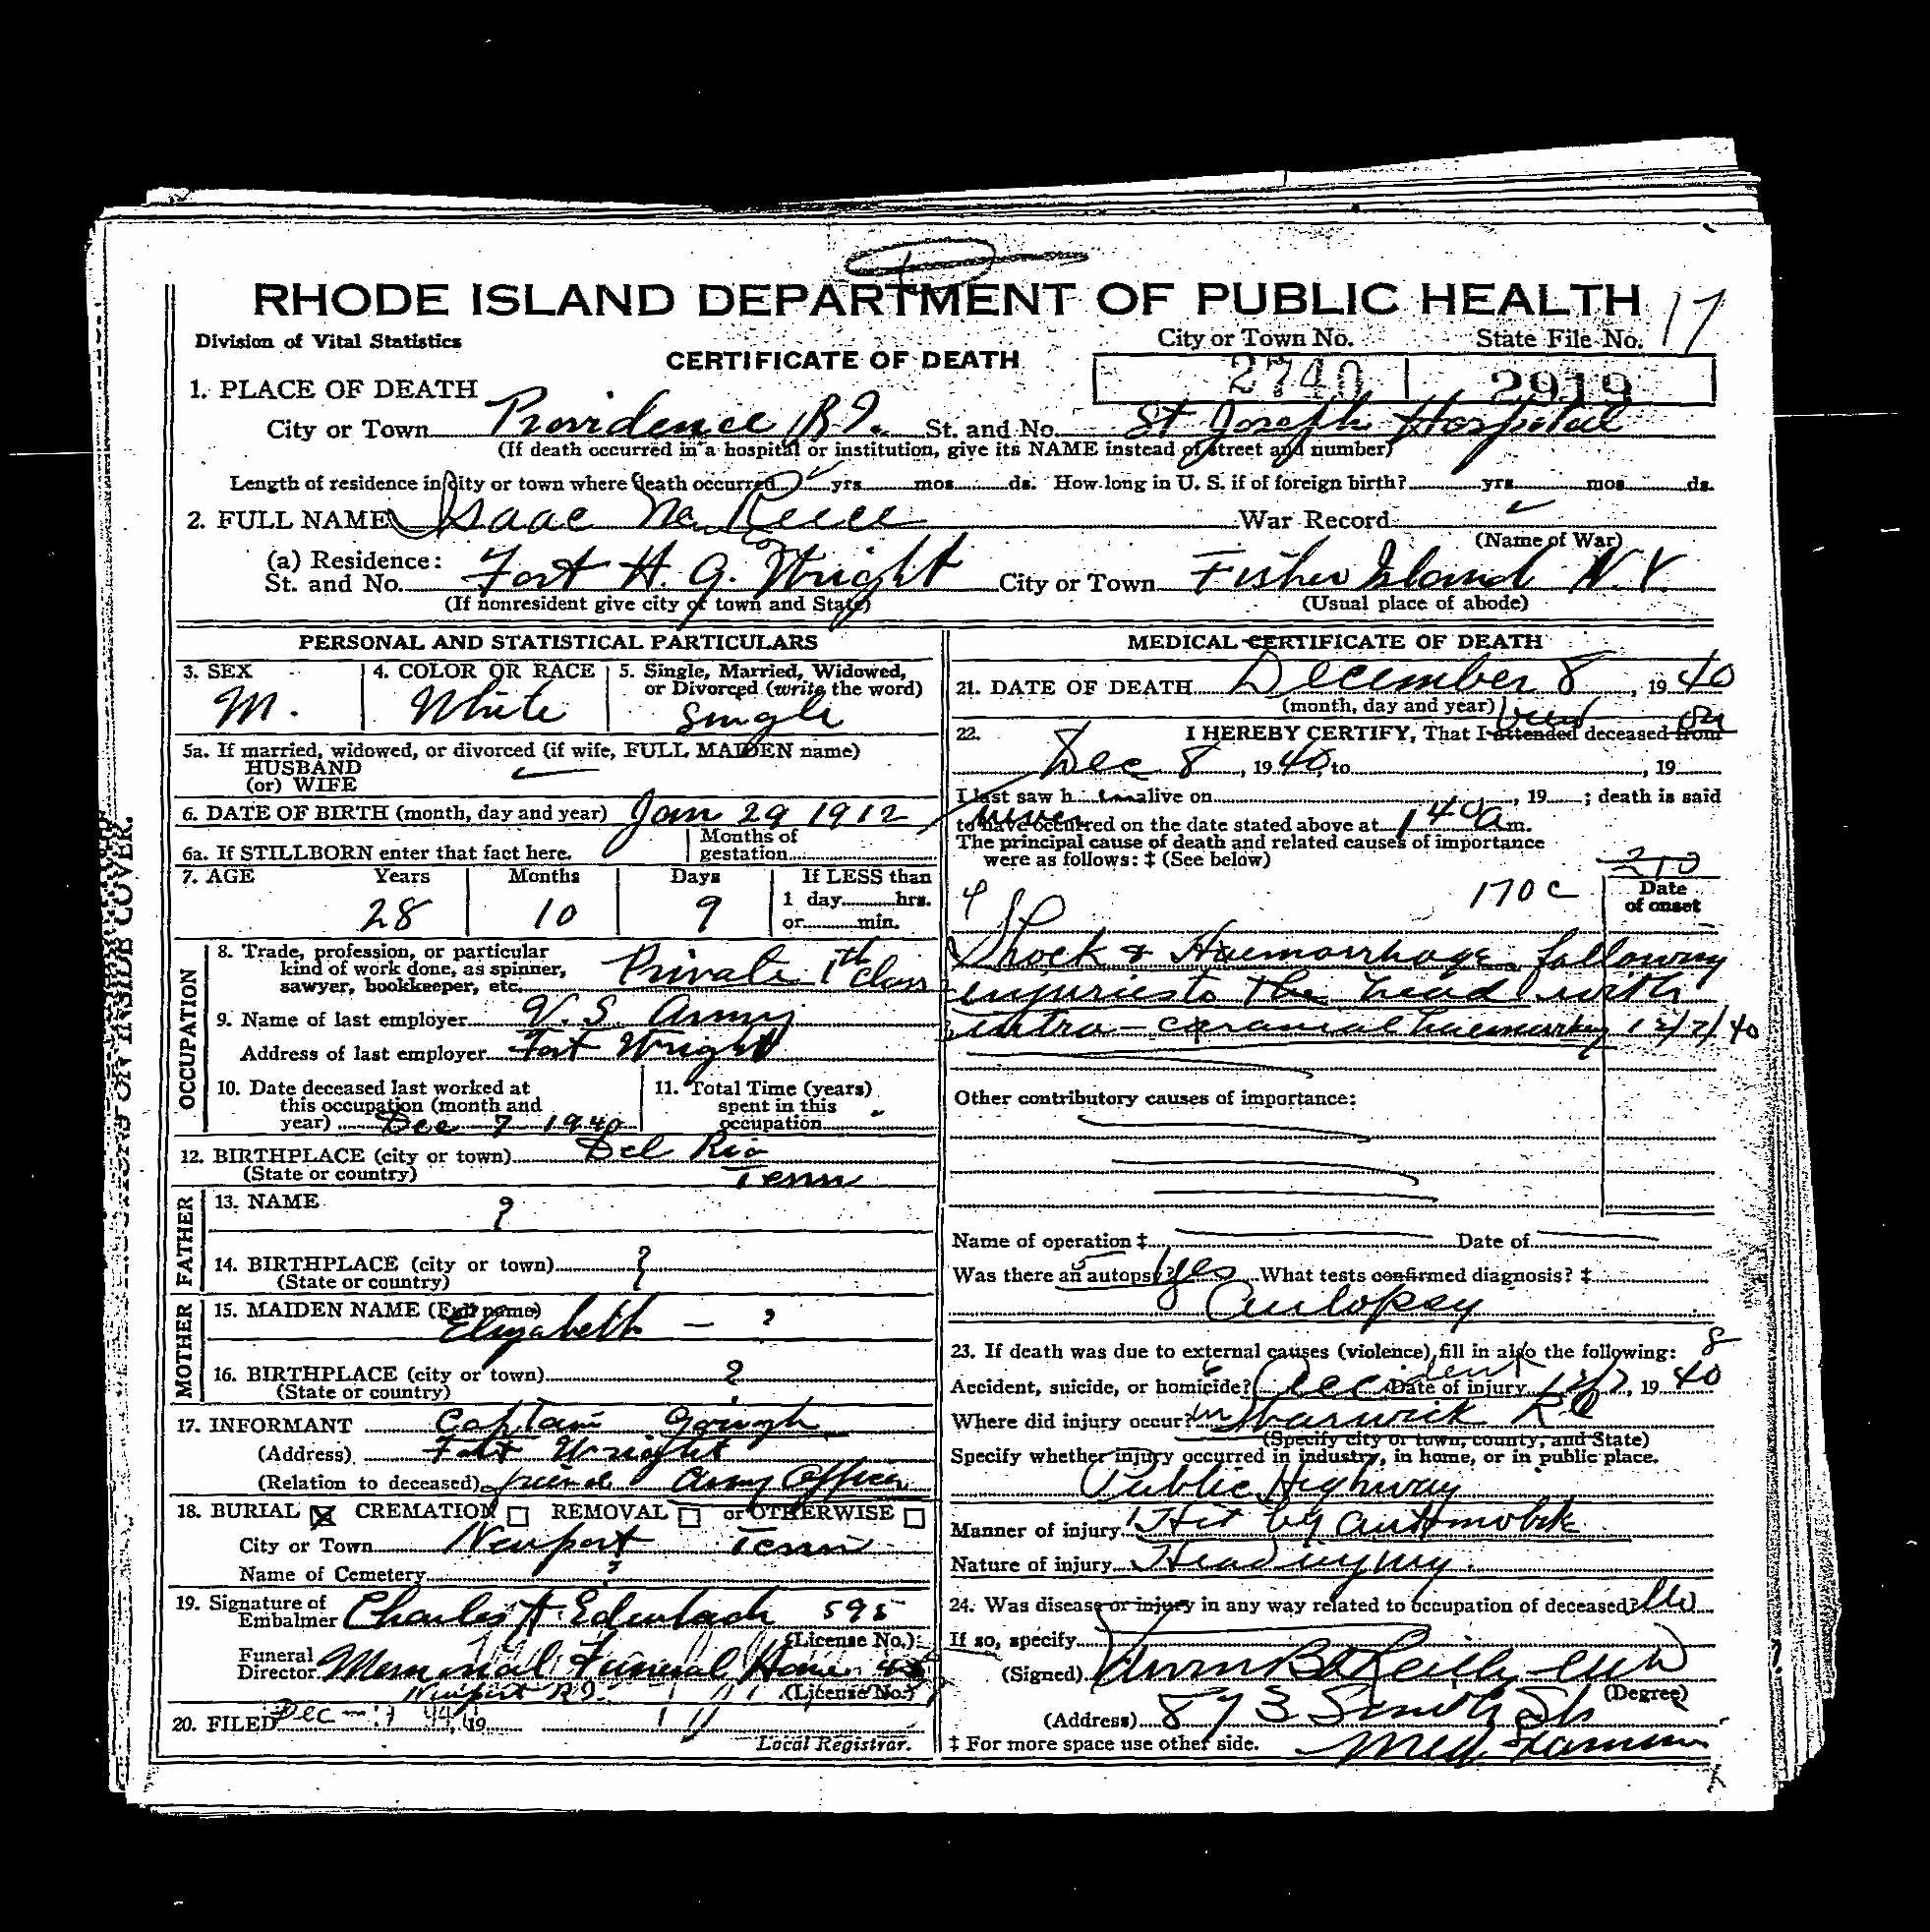 RHODE ISLAND DEPARTMENT OF PUBLIC HEALTH 17
Division of Vital Statistics
CERTIFICATE OF DEATH
City or Town No. State File No.
2740 2919
1. PLACE OF DEATH
City or Town Providence R.I. St. and No. St Joseph Hospital
(If death occurred in a hospital or institution, give its NAME instead of street and number)
Length of residence in city or town where death occurred yrs. mos. ds. How long in U. S. if of foreign birth? yrs. mos. ds.
2. FULL NAME Isaac Reece War Record
(Name of War)
(a) Residence:
St. and No. Fort H. G. Wright City or Town Fisher Island N.Y.
(If nonresident give city or town and State) (Usual place of abode)
PERSONAL AND STATISTICAL PARTICULARS
3. SEX 4. COLOR OR RACE 5. Single, Married, Widowed,
or Divorced (write the word)
M. White Single
5a. If married, widowed, or divorced (if wife, FULL MAIDEN name)
HUSBAND
(or) WIFE
6. DATE OF BIRTH (month, day and year) Jan 29 1912
6a. If STILLBORN enter that fact here. Months of
gestation
7. AGE Years Months Days If LESS than
28 10 9 1 day hrs.
or min.
OCCUPATION
8. Trade, profession, or particular
kind of work done, as spinner,
sawyer, bookkeeper, etc. Private 1th Class
9. Name of last employer U.S. Army
Address of last employer Fort Wright
10. Date deceased last worked at
this occupation (month and
year) Dec 7 1940
11. Total Time (years)
spent in this
occupation "
12. BIRTHPLACE (city or town) Del Rio
(State or country) Tenn
FATHER
13. NAME ?
14. BIRTHPLACE (city or town) ?
(State or country)
MOTHER
15. MAIDEN NAME (Full name)
Elizabeth - ?
16. BIRTHPLACE (city or town) ?
(State or country)
17. INFORMANT Captain Gough
(Address) Fort Wright
(Relation to deceased) friend Army Officer
18. BURIAL CREMATION REMOVAL or OTHERWISE
City or Town Newport Tenn
Name of Cemetery ?
19. Signature of
Embalmer Charles A. 595
(License No.)
Funeral
Director Memorial Funeral Home
Newport R.I. (License No.)
20. FILED Dec 19
Local Registrar.
MEDICAL CERTIFICATE OF DEATH
21. DATE OF DEATH December 8, 1940
(month, day and year)
22. I HEREBY CERTIFY, That I attended viewed deceased from on
Dec 8, 1940, to , 19
I last saw h im alive on , 19 ; death is said
to have occurred on the date stated above at 1 40 a m.
The principal cause of death and related causes of importance
were as follows: ‡ (See below)
210
170 c Date
of onset
Shock & Haemorrhage following
injuries to the head with
intra-cranial haemorrhage 12/7/40
Other contributory causes of importance:
Name of operation ‡ Date of
Was there an autopsy? Yes What tests confirmed diagnosis? ‡
Autopsy
23. If death was due to external causes (violence) fill in also the following: 8
Accident, suicide, or homicide? Accident Date of injury 12/7, 1940
Where did injury occur? in Warwick RI
(Specify city or town, county, and State)
Specify whether injury occurred in industry, in home, or in public place.
Public Highway
Manner of injury Hit by automobile
Nature of injury Head injury
24. Was disease or injury in any way related to occupation of deceased? No
If so, specify
(Signed)
(Degree)
(Address) 873 Smith St
‡ For more space use other side. Med Examiner
INSIDE COVER.